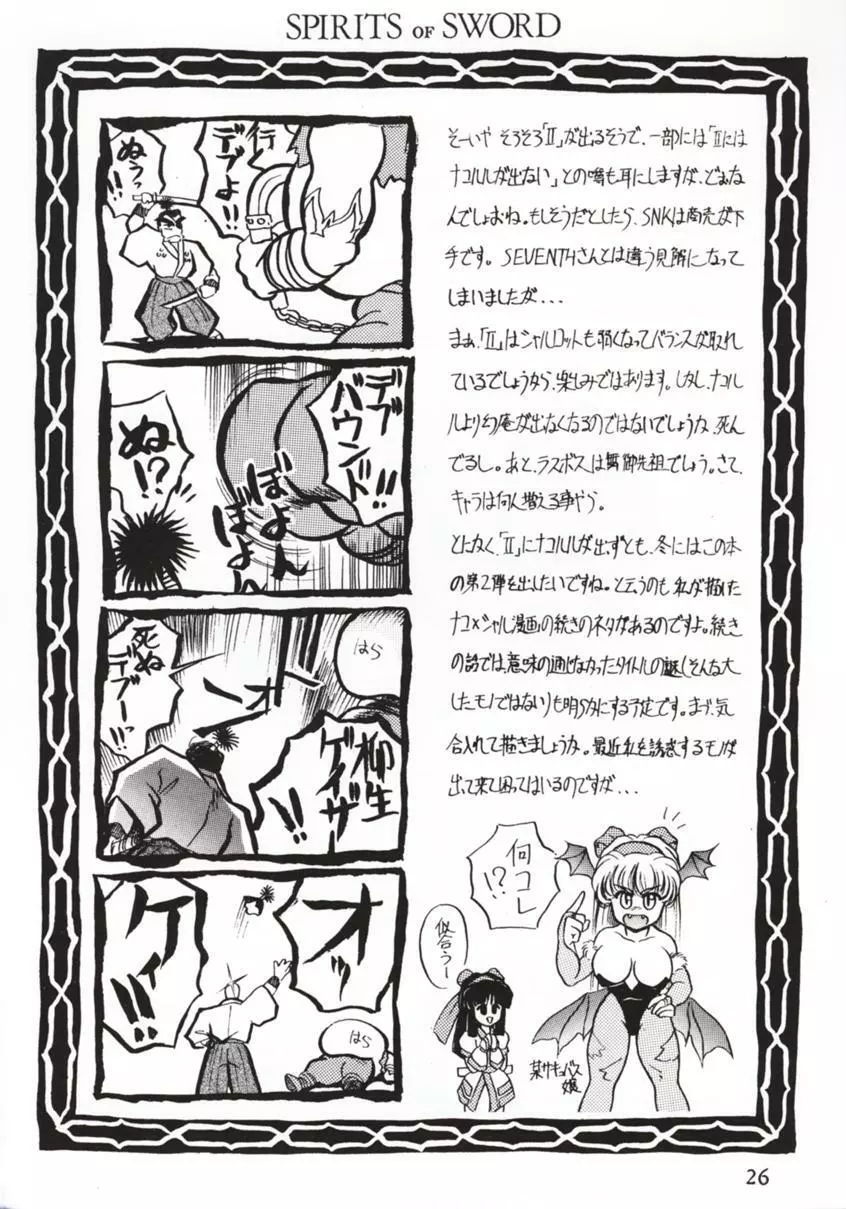 SPIRITS OF SWORD
行くデブよ!!
ぬぅっ!!
デブバウンド!!
ぼよんぼよん
ぬ!?
はら
死ねデブー!!
ニオー
柳生ゲイザー!!
オッ
ケイ!!
はら
そーいや そろそろ「Ⅱ」が出るそうで、一部には「Ⅱには
ナコルルが出ない」との噂も耳にしますが、どおな
んでしょおね。もしそうだとしたら、SNKは商売が下
手です。SEVENTHさんとは違う見解になって
しまいましたが...
まぁ「Ⅱ」はシャルロットも弱くなってバランスが取れ
ているでしょうから、楽しみではあります。しかし、ナコル
ルより幻庵が出なくなるのではないでしょうか、死ん
でるし。あと、ラスボスは舞御先祖でしょう。さて、
キャラは何人増える事やら。
とにかく、「Ⅱ」にナコルルが出ずとも、冬にはこの本
の第2弾を出したいですね。と云うのも 私が描いた
ナコ×シャル漫画の続きのネタがあるのですよ。続き
の話では、意味の通じなかったタイトルの謎(そんな大
したモノではない)も明らかにする予定です。まず、気
合入れて描きましょうか。最近私を誘惑するモノが
出て来て困ってはいるのですが...
何コレ!?
似合うー
某サキュバス嬢
26